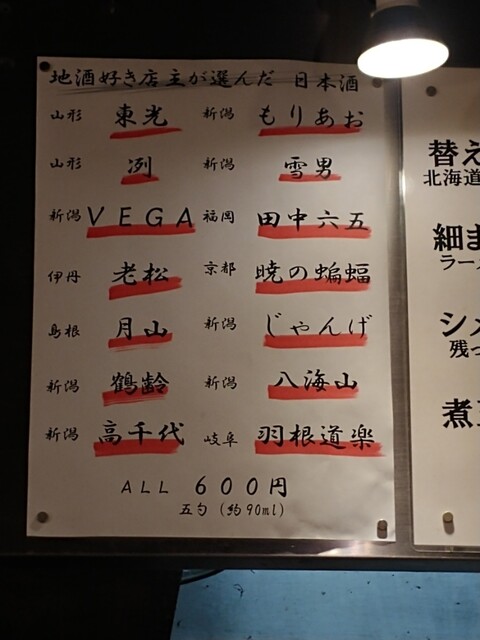 地酒好き店主が選んだ 日本酒
山形 東光 新潟 もりあお
山形 冽 新潟 雪男
新潟 VEGA 福岡 田中六五
伊丹 老松 京都 暁の蝙蝠
島根 月山 新潟 じゃんげ
新潟 鶴齢 新潟 八海山
新潟 高千代 岐阜 羽根道楽
ALL 600円
五勺(約90ml)
替え
北海道
細ま
ラー
シメ
残っ
煮